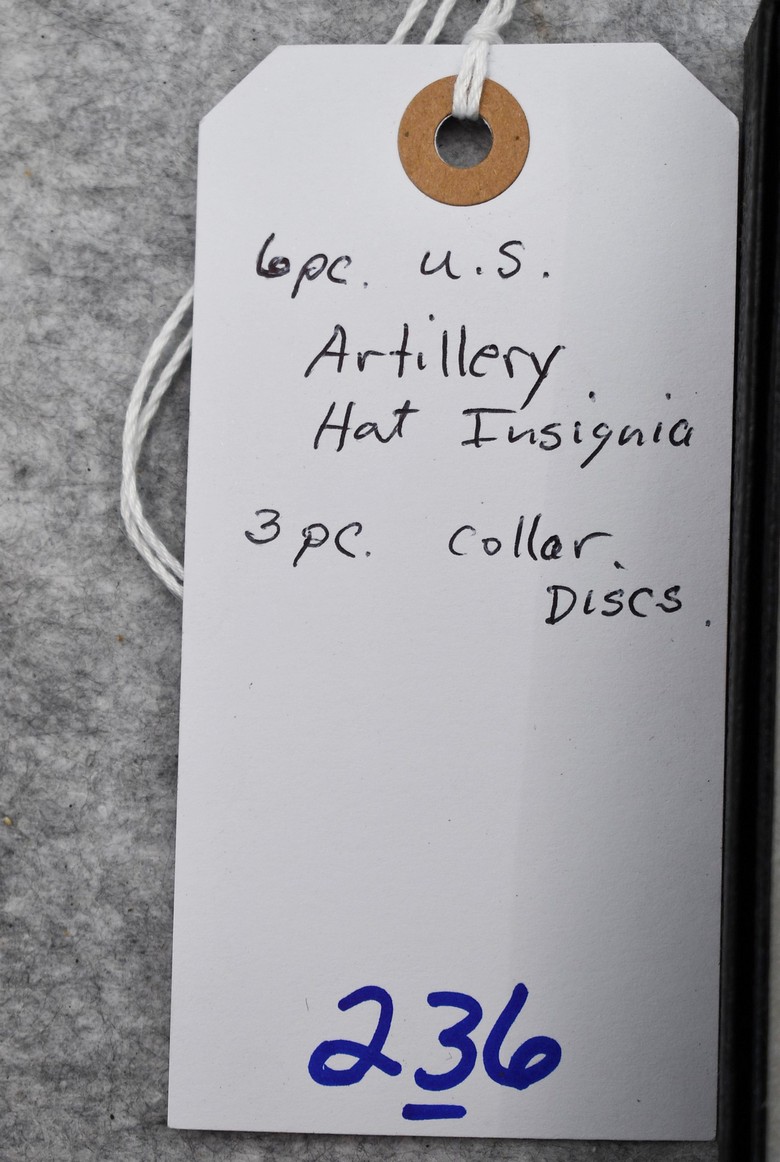 6pc. U.S.
Artillery
Hat Insignia
3 pc. Collar
Discs.
236